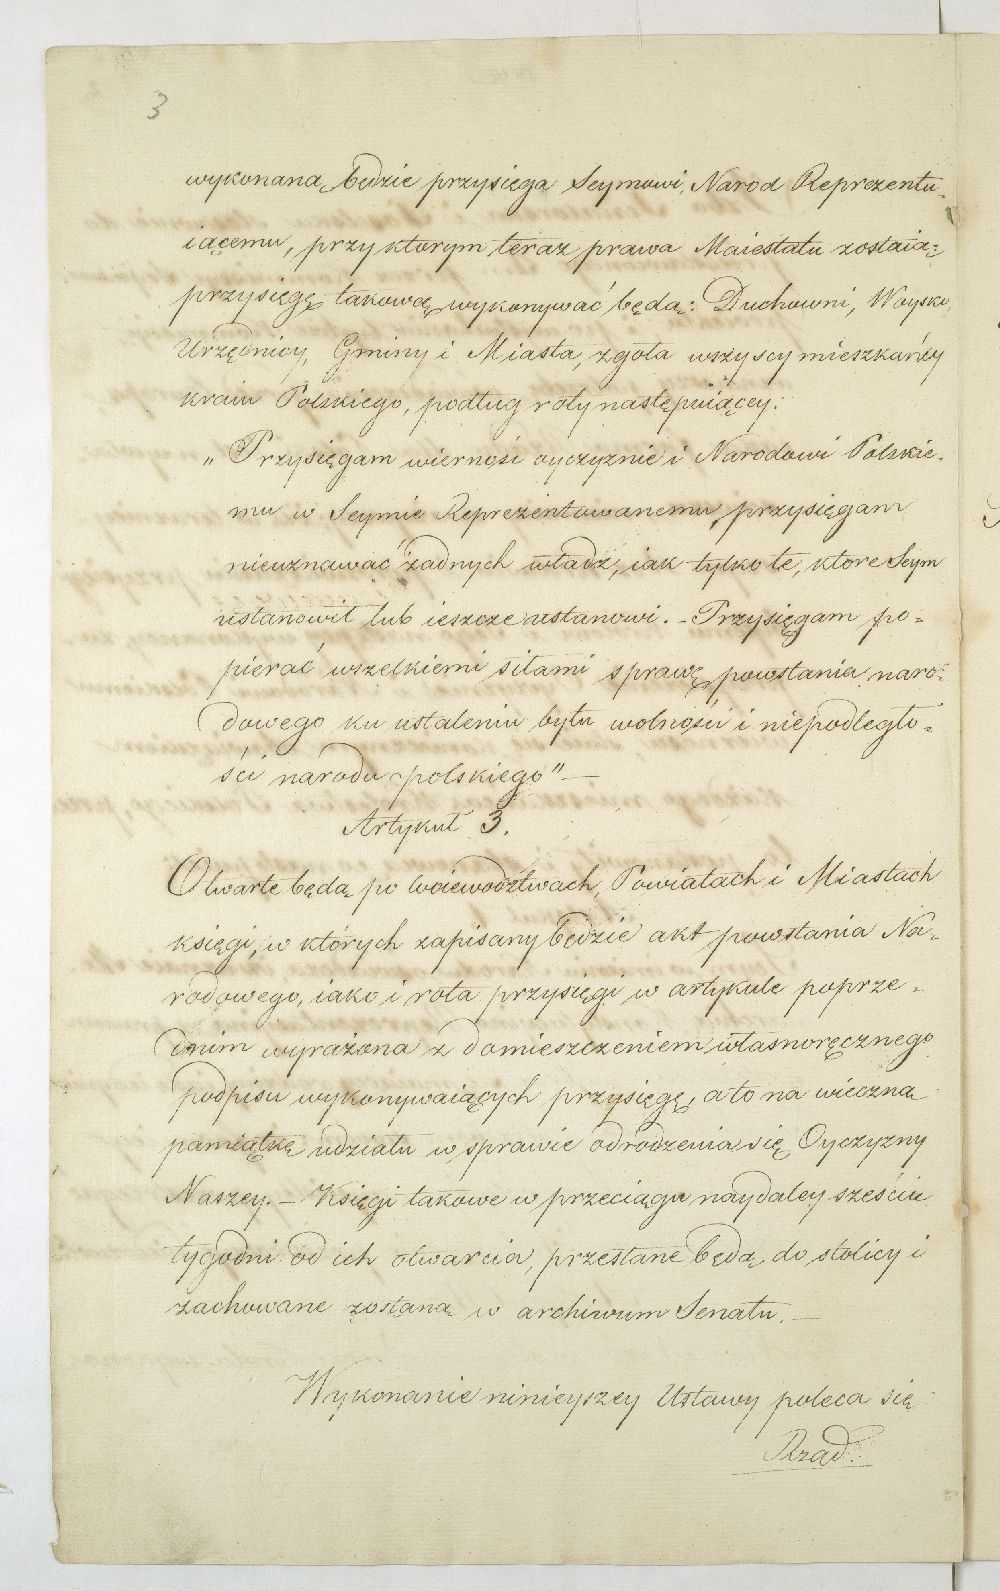 3
wykonaną będzie przysięga Seymowi, Narod Reprezentu-
iącemu, przy ktorym teraz prawa Maiestatu zostaią=
przysięgę takową wykonywać będą: Duchowni, Woysko,
Urzędnicy, Gminy i Miasta, zgoła wszyscy mieszkańcy
kraiu Polskiego, podług roty następuiącey:
„ Przysięgam wierność oyczyznie i Narodowi Polskie-
mu w Seymie Reprezentowanemu, przysięgam
nieuznawać żadnych władz, iak tylko te, ktore Seym
ustanowił lub ieszcze ustanowi. - Przysięgam po=
pierać wszelkiemi siłami sprawę powstania naro-
dowego ku ustaleniu bytu wolności i niepodległo-
ści narodu polskiego" —
Artykuł 3.
Otwarte będą po Woiewodztwach, Powiatach i Miastach
księgi, w których zapisany będzie akt powstania Na-
rodowego, iako i rota przysięgi w artykule poprze-
dnim wyrażona z domieszczeniem własnoręcznego
podpisu wykonywaiących przysięgę, a to na wieczną
pamiątkę udziału w sprawie odrodzenia się Oyczyzny
Naszey. – Księgi takowe w przeciągu naydaley sześciu
tygodni od ich otwarcia, przesłane będą do stolicy i
zachowane zostaną w archiwum Senatu. —
Wykonanie ninieyszey Ustawy poleca się
Rząd.